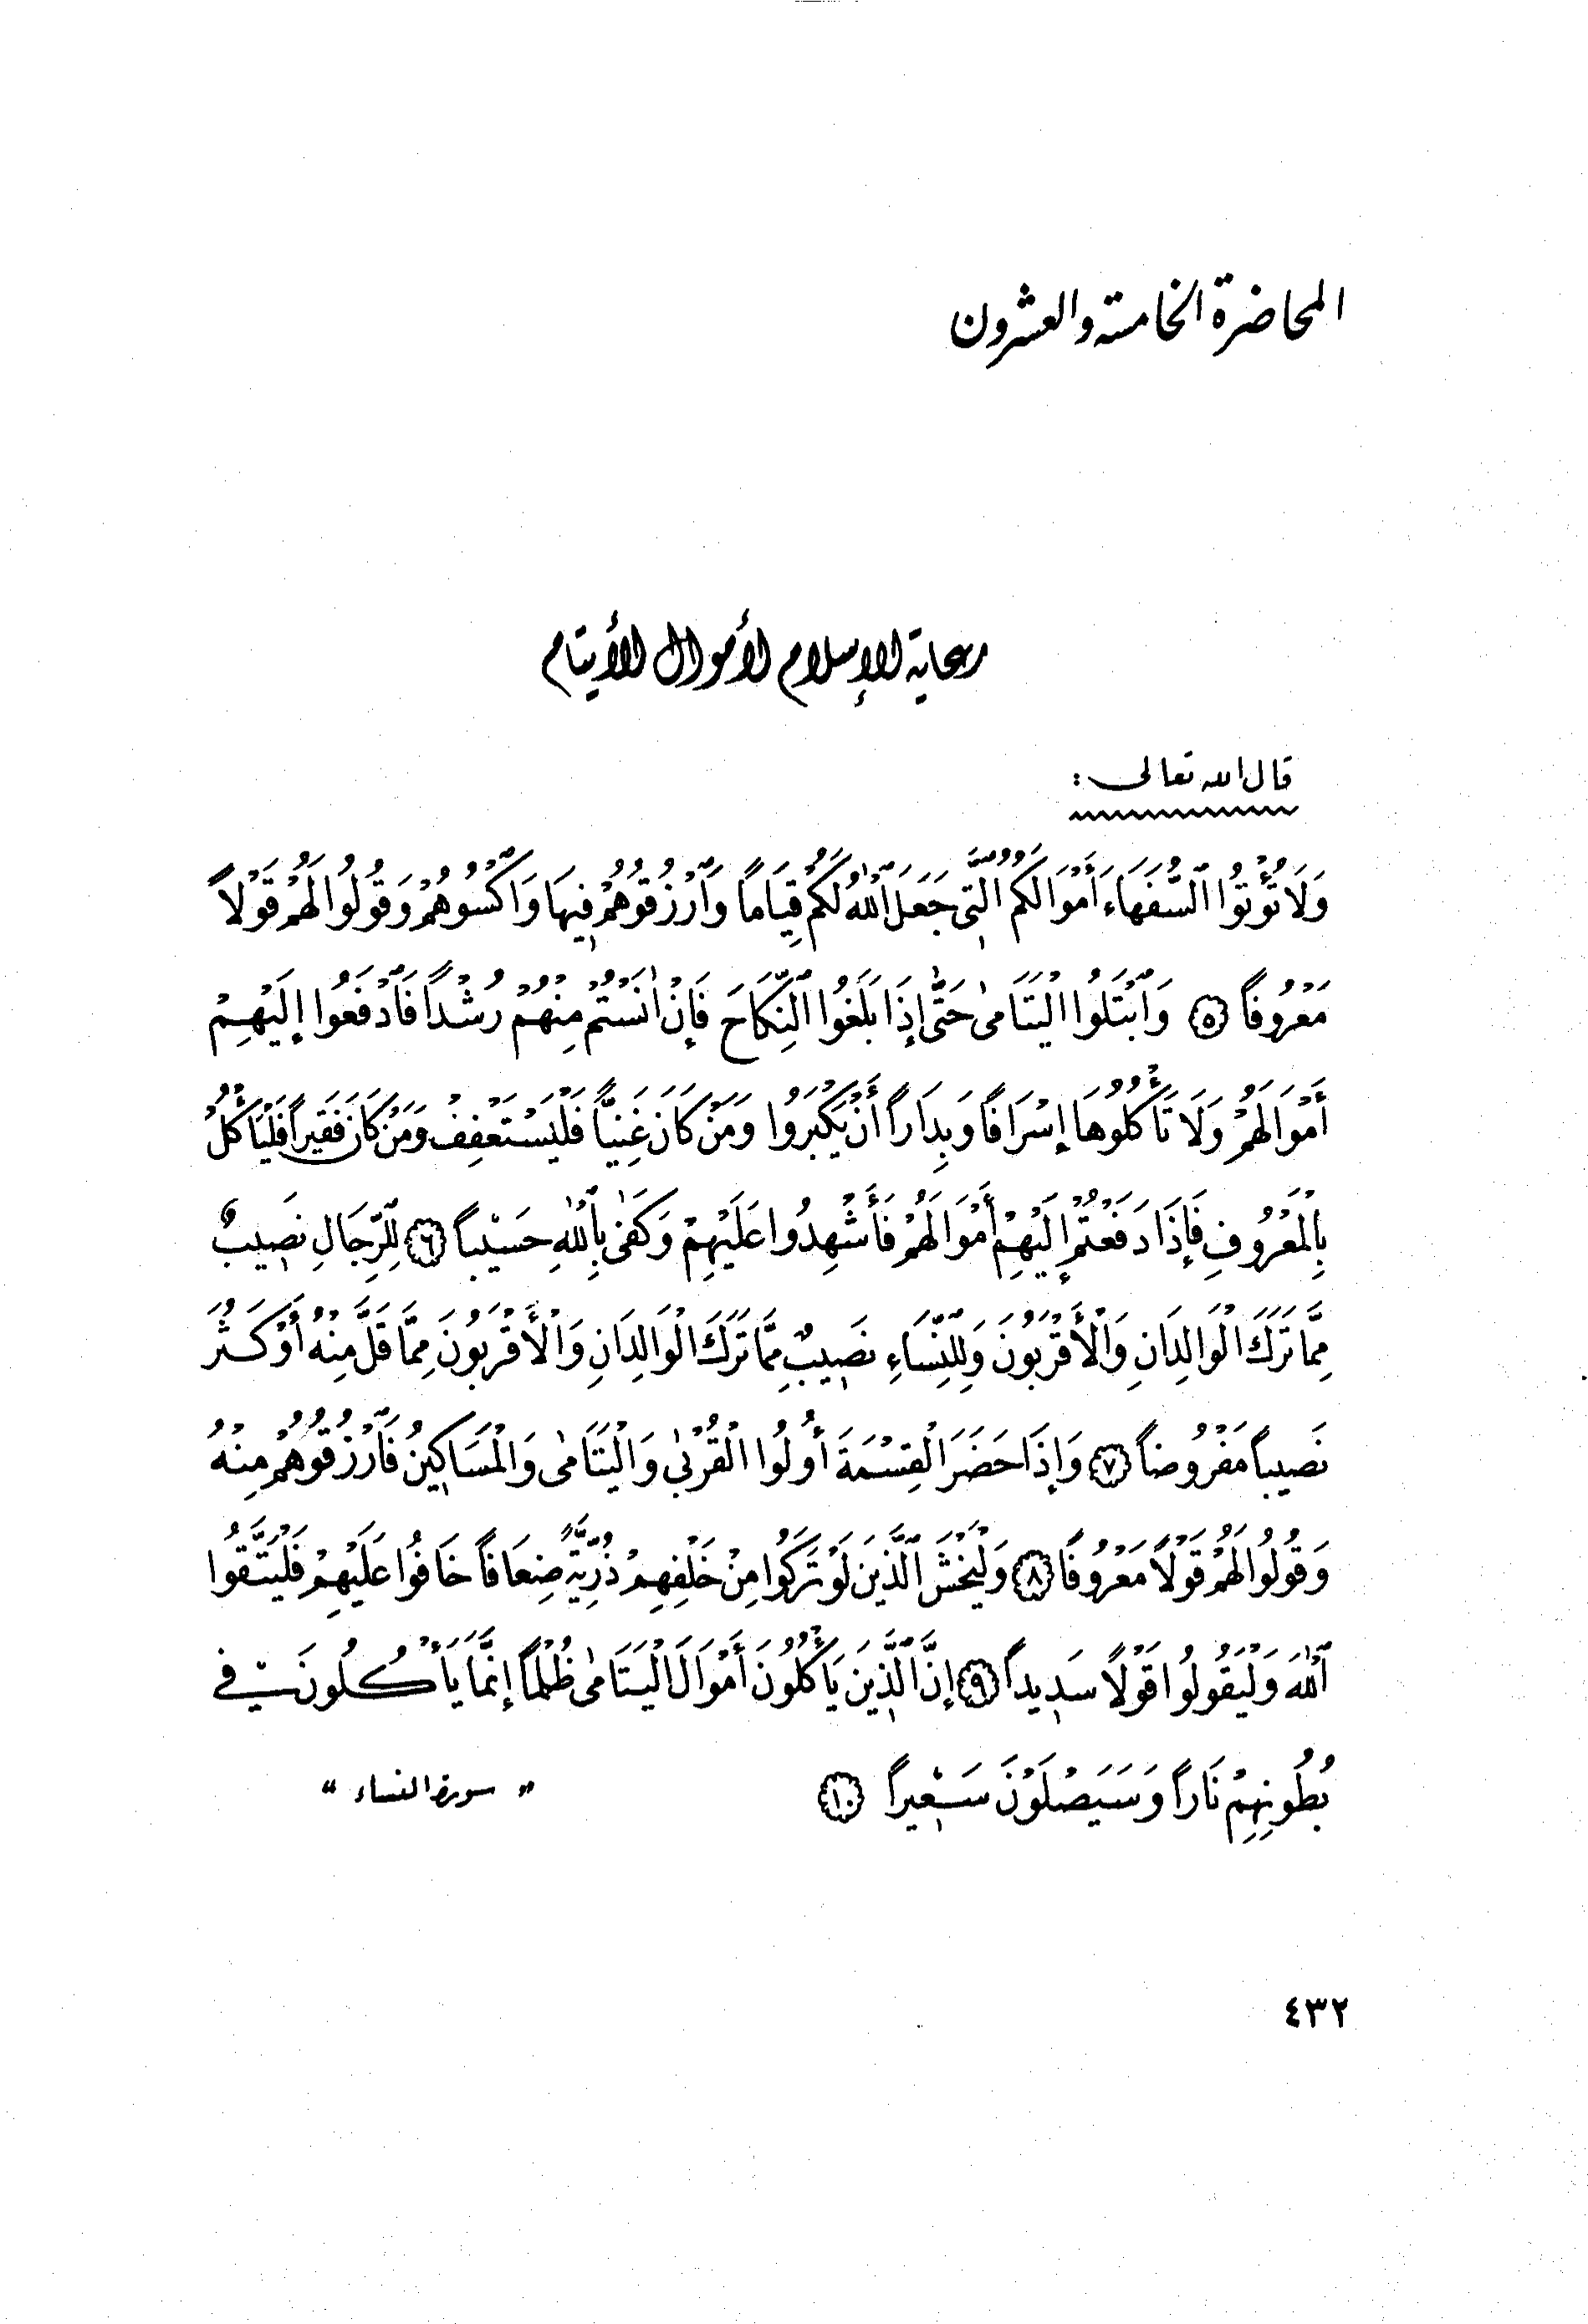 المحاضرة الخامسة والعشرون
رعاية الإسلام لأموال الأيتام
قال الله تعالى :
وَلَا تُؤْتُوا السُّفَهَاءَ أَمْوَالَكُمُ الَّتِي جَعَلَ اللَّهُ لَكُمْ قِيَاماً وَارْزُقُوهُمْ فِيهَا وَاكْسُوهُمْ وَقُولُوا لَهُمْ قَوْلاً
مَعْرُوفاً ﴿٥﴾ وَابْتَلُوا الْيَتَامَىٰ حَتَّىٰ إِذَا بَلَغُوا النِّكَاحَ فَإِنْ آنَسْتُمْ مِنْهُمْ رُشْداً فَادْفَعُوا إِلَيْهِمْ
أَمْوَالَهُمْ وَلَا تَأْكُلُوهَا إِسْرَافاً وَبِدَاراً أَنْ يَكْبَرُوا وَمَنْ كَانَ غَنِيّاً فَلْيَسْتَعْفِفْ وَمَنْ كَانَ فَقِيراً فَلْيَأْكُلْ
بِالْمَعْرُوفِ فَإِذَا دَفَعْتُمْ إِلَيْهِمْ أَمْوَالَهُمْ فَأَشْهِدُوا عَلَيْهِمْ وَكَفَىٰ بِاللَّهِ حَسِيباً ﴿٦﴾ لِلرِّجَالِ نَصِيبٌ
مِمَّا تَرَكَ الْوَالِدَانِ وَالْأَقْرَبُونَ وَلِلنِّسَاءِ نَصِيبٌ مِمَّا تَرَكَ الْوَالِدَانِ وَالْأَقْرَبُونَ مِمَّا قَلَّ مِنْهُ أَوْ كَثُرَ
نَصِيباً مَفْرُوضاً ﴿٧﴾ وَإِذَا حَضَرَ الْقِسْمَةَ أُولُوا الْقُرْبَىٰ وَالْيَتَامَىٰ وَالْمَسَاكِينُ فَارْزُقُوهُمْ مِنْهُ
وَقُولُوا لَهُمْ قَوْلاً مَعْرُوفاً ﴿٨﴾ وَلْيَخْشَ الَّذِينَ لَوْ تَرَكُوا مِنْ خَلْفِهِمْ ذُرِّيَّةً ضِعَافاً خَافُوا عَلَيْهِمْ فَلْيَتَّقُوا
اللَّهَ وَلْيَقُولُوا قَوْلاً سَدِيداً ﴿٩﴾ إِنَّ الَّذِينَ يَأْكُلُونَ أَمْوَالَ الْيَتَامَىٰ ظُلْماً إِنَّمَا يَأْكُلُونَ فِي
بُطُونِهِمْ نَاراً وَسَيَصْلَوْنَ سَعِيراً ﴿١٠﴾ « سورة النساء »
٤٣٢